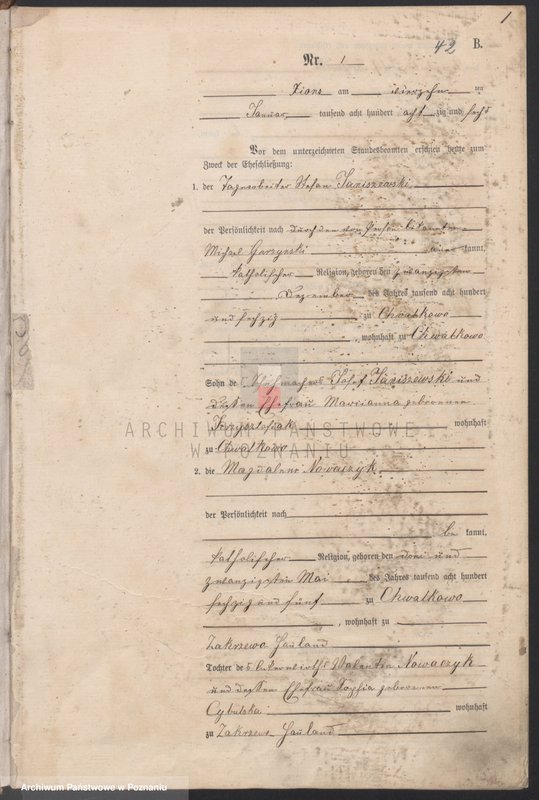 1
42 B.
Nr. 1
Xions am vierzehn ten
Januar tausend acht hundert acht zig und sechs
Vor dem unterzeichneten Standesbeamten erschien heute zum
Zweck der Eheschließung:
1. der Tagearbeiter Stefan Janiszewski
der Persönlichkeit nach durch den von Person bekannten
Michael kannt,
katholischer Religion, geboren den zwanzigsten
Dezember des Jahres tausend acht hundert
und sechzig zu Chwalkowo
, wohnhaft zu Chwalkowo
Sohn de s Schuhmachers Josef Janiszewski und
dessen Ehefrau Marcianna geborenen
Krzysztofiak wohnhaft
zu Chwalkowo
2. die Magdalena Nowaczyk
der Persönlichkeit nach
be kannt,
katholischer Religion, geboren den drei und
zwanzigsten Mai des Jahres tausend acht hundert
sechzig und fünf zu Chwalkowo
, wohnhaft zu
Zakrzewo Hauland
Tochter des Valentin Nowaczyk
und dessen Ehefrau Sophia geborenen
Cybulska wohnhaft
zu Zakrzewo Hauland
ARCHIWUM PAŃSTWOWE
W POZNANIU
Archiwum Państwowe w Poznaniu